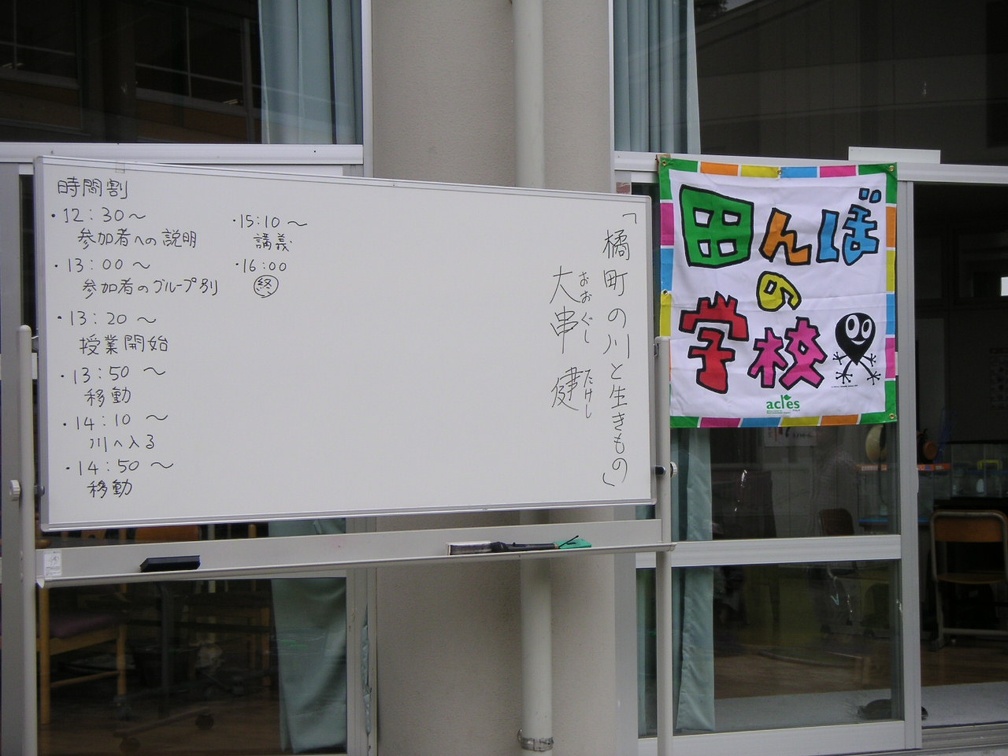 時間割
・12:30〜
参加者への説明
・13:00〜
参加者のグループ別
・13:20〜
授業開始
・13:50〜
移動
・14:10〜
川へ入る
・14:50〜
移動
・15:10〜
講義
・16:00
終
「橘町の川と生きもの」
大串 健
おおぐし たけし
田んぼ
の
学校
acles